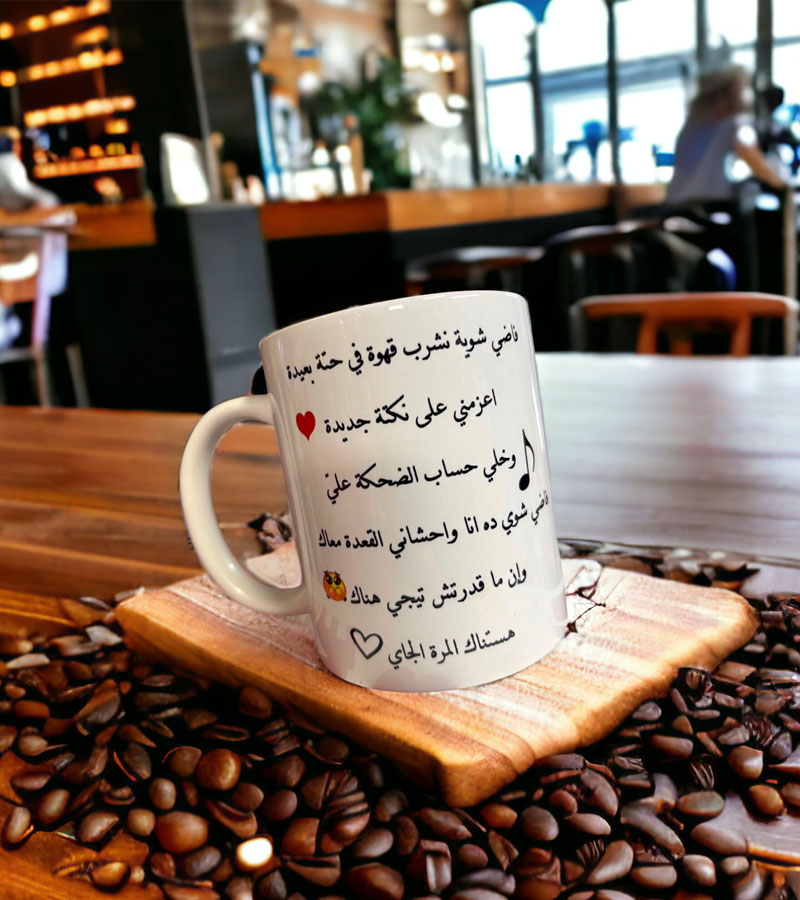 فاضي شوية نشرب قهوة في حتة بعيدة
اعزمني على نكتة جديدة
وخلي حساب الضحكة عليّ
فاضي شوي ده انا واحشاني القعدة معاك
وإن ما قدرتش تيجي هناك
هستناك المرة الجاي